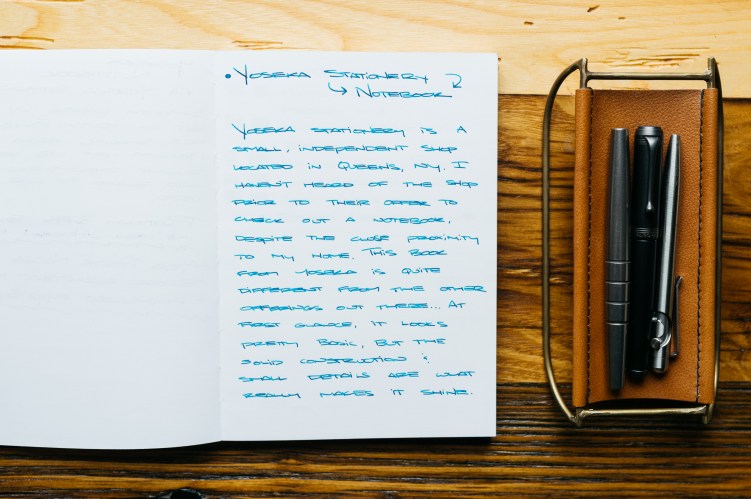 • Yoseka Stationery
↳ Notebook
Yoseka Stationery is a
small, independent shop
located in Queens, NY. I
haven't heard of the shop
prior to their offer to
check out a notebook,
despite the close proximity
to my home. This book
from Yoseka is quite
different from the other
offerings out there... At
first glance, it looks
pretty basic, but the
solid construction &
small details are what
really makes it shine.